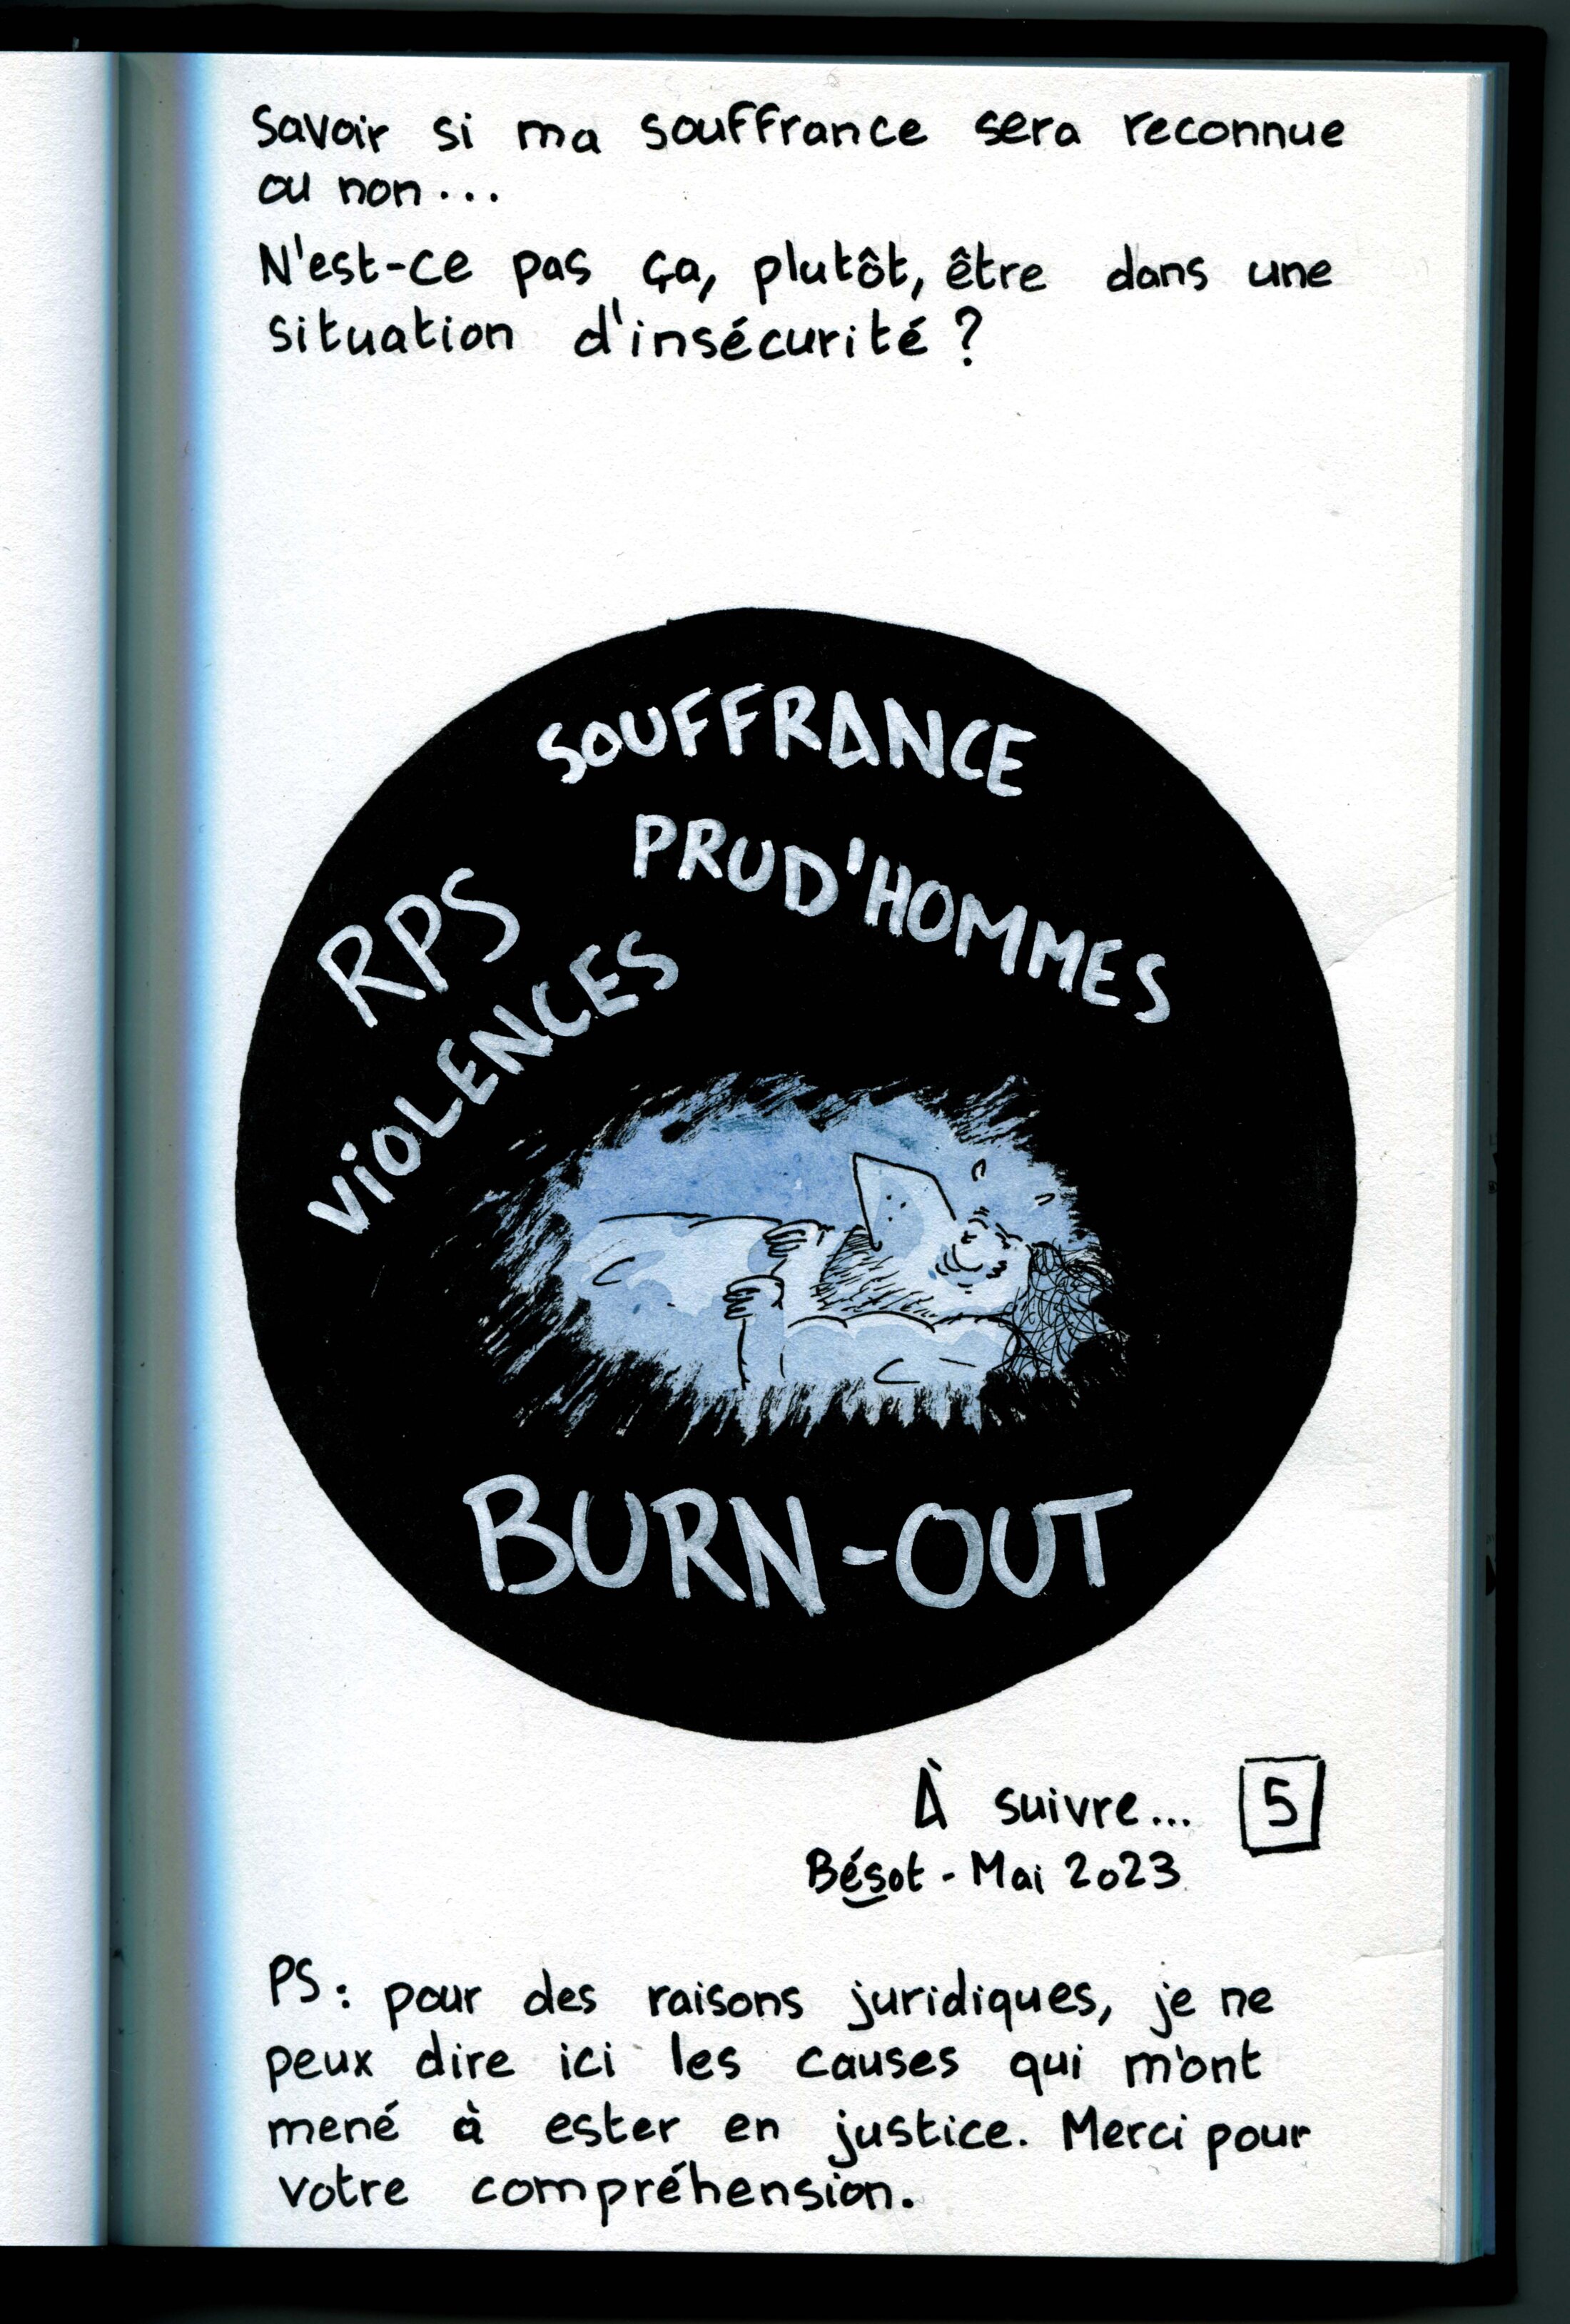 Savoir si ma souffrance sera reconnue
ou non...
N'est-ce pas ça, plutôt, être dans une
situation d'insécurité ?
SOUFFRANCE
PRUD'HOMMES
RPS
VIOLENCES
BURN-OUT
À suivre... 5
Bésot - Mai 2023
PS : pour des raisons juridiques, je ne
peux dire ici les causes qui m'ont
mené à ester en justice. Merci pour
votre compréhension.